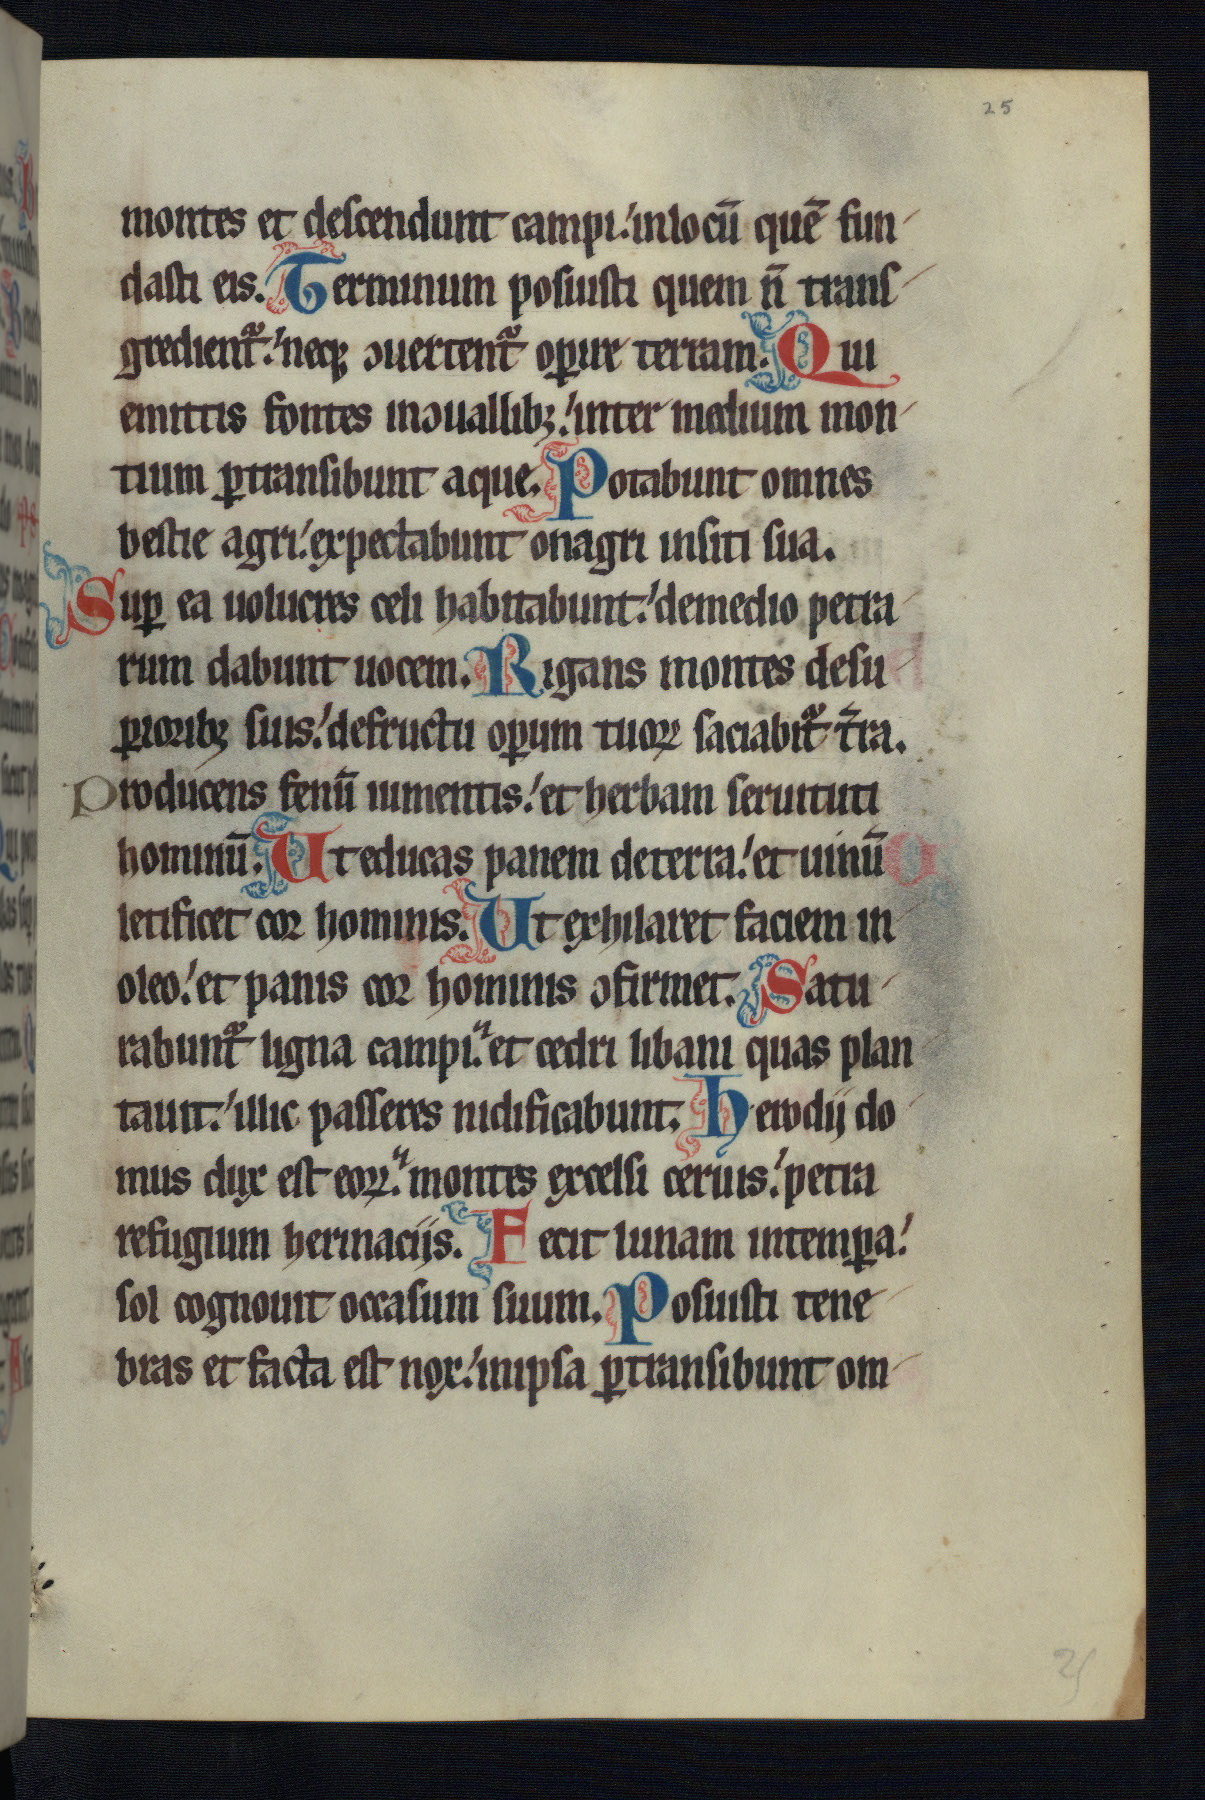 25
montes et descendunt campi.ʹinlocū quē fun-
dasti eis. Terminum posuisti quem n̄ transſ-
gredient᷑.ʹneqꝫ ɔuertent᷑ oꝑire terram. Qui
emittis fontes inɔuallibꝫ.ʹinter medium mon-
tium ꝑtransibunt aque. Potabunt omnes
bestie agri.ʹexpectabunt onagri insiti sua.
Suꝑ ea uolucres celi habitabunt.ʹdemedio petra-
rum dabunt uocem. Rigans montes desu
ꝑioribꝫ suis.ʹdefructu oꝑum tuoꝝ saciabit᷑ t̄ra.
Producens fenū iumentis.ʹet herbam seruituti
hominū. Ut educas panem deterra.ʹet uinū
letificet cor hominis. Ut exhilaret faciem in-
oleo.ʹet panis cor hominis ɔfirmet. Satu-
rabunt᷑ ligna campi.ʺet cedri libani quas plan
tauit.ʹillic passeres nidificabunt. Herodij do-
mus dux est eoꝝ.ʺmontes excelsi ceruis.ʹpetra
refugium herinacijs. Fecit lunam intemꝑa.ʹ
sol cognouit occasum suum. Posuisti tene-
bras et facta est nox.ʹinipsa ꝑtransibunt om-
25